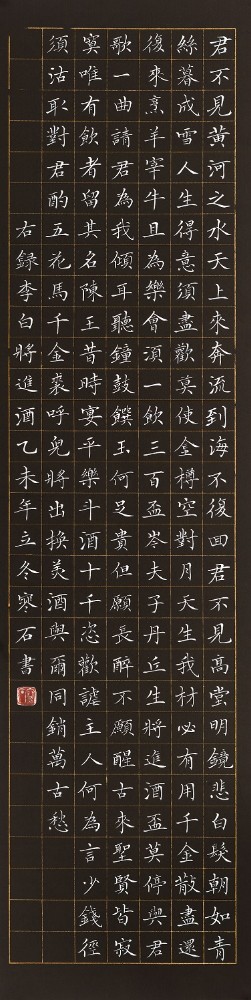 君不見黃河之水天上來奔流到海不復回君不見高堂明鏡悲白髮朝如青
絲暮成雪人生得意須盡歡莫使金樽空對月天生我材必有用千金散盡還
復來烹羊宰牛且為樂會須一飲三百盃岑夫子丹丘生將進酒盃莫停與君
歌一曲請君為我傾耳聽鐘鼓饌玉何足貴但願長醉不願醒古來聖賢皆寂
寞唯有飲者留其名陳王昔時宴平樂斗酒十千恣歡謔主人何為言少錢徑
須沽取對君酌五花馬千金裘呼兒將出換美酒與爾同銷萬古愁
右錄李白將進酒乙未年立冬寒石書